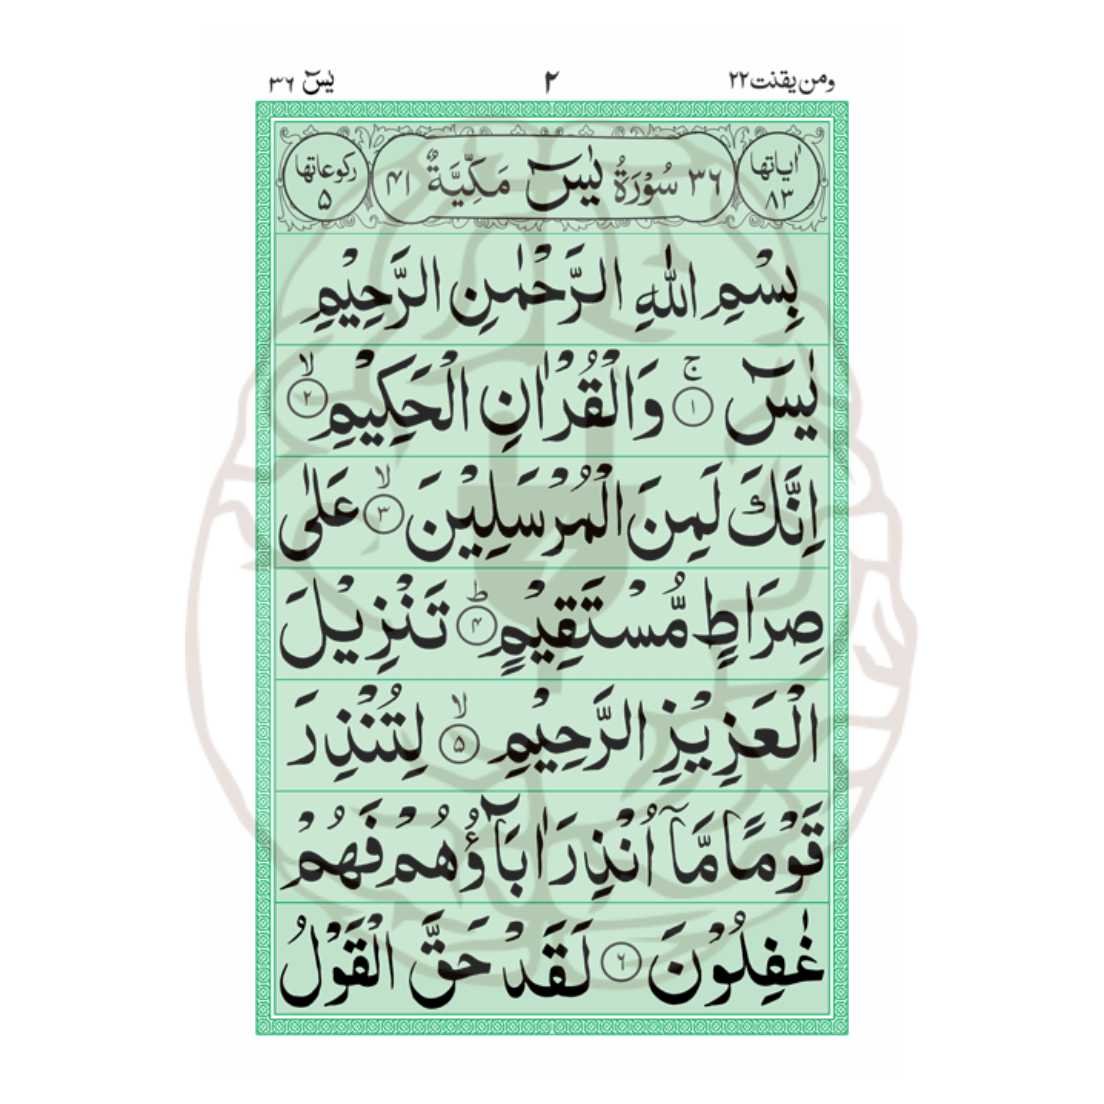 ومن يقنت ٢٢
٢
يٰسٓ ٣٦
اٰياتها ٨٣
٣٦ سُوْرَةُ يٰسٓ مَكِّيَّةٌ ٤١
ركوعاتها ٥
بِسْمِ اللّٰهِ الرَّحْمٰنِ الرَّحِيْمِ
يٰسٓ ۚ ١ وَالْقُرْاٰنِ الْحَكِيْمِ ۙ ٢
اِنَّكَ لَمِنَ الْمُرْسَلِيْنَ ۙ ٣ عَلٰى
صِرَاطٍ مُّسْتَقِيْمٍ ؕ ٤ تَنْزِيْلَ
الْعَزِيْزِ الرَّحِيْمِ ۙ ٥ لِتُنْذِرَ
قَوْمًا مَّاۤ اُنْذِرَ اٰبَآؤُهُمْ فَهُمْ
غٰفِلُوْنَ ٦ لَقَدْ حَقَّ الْقَوْلُ